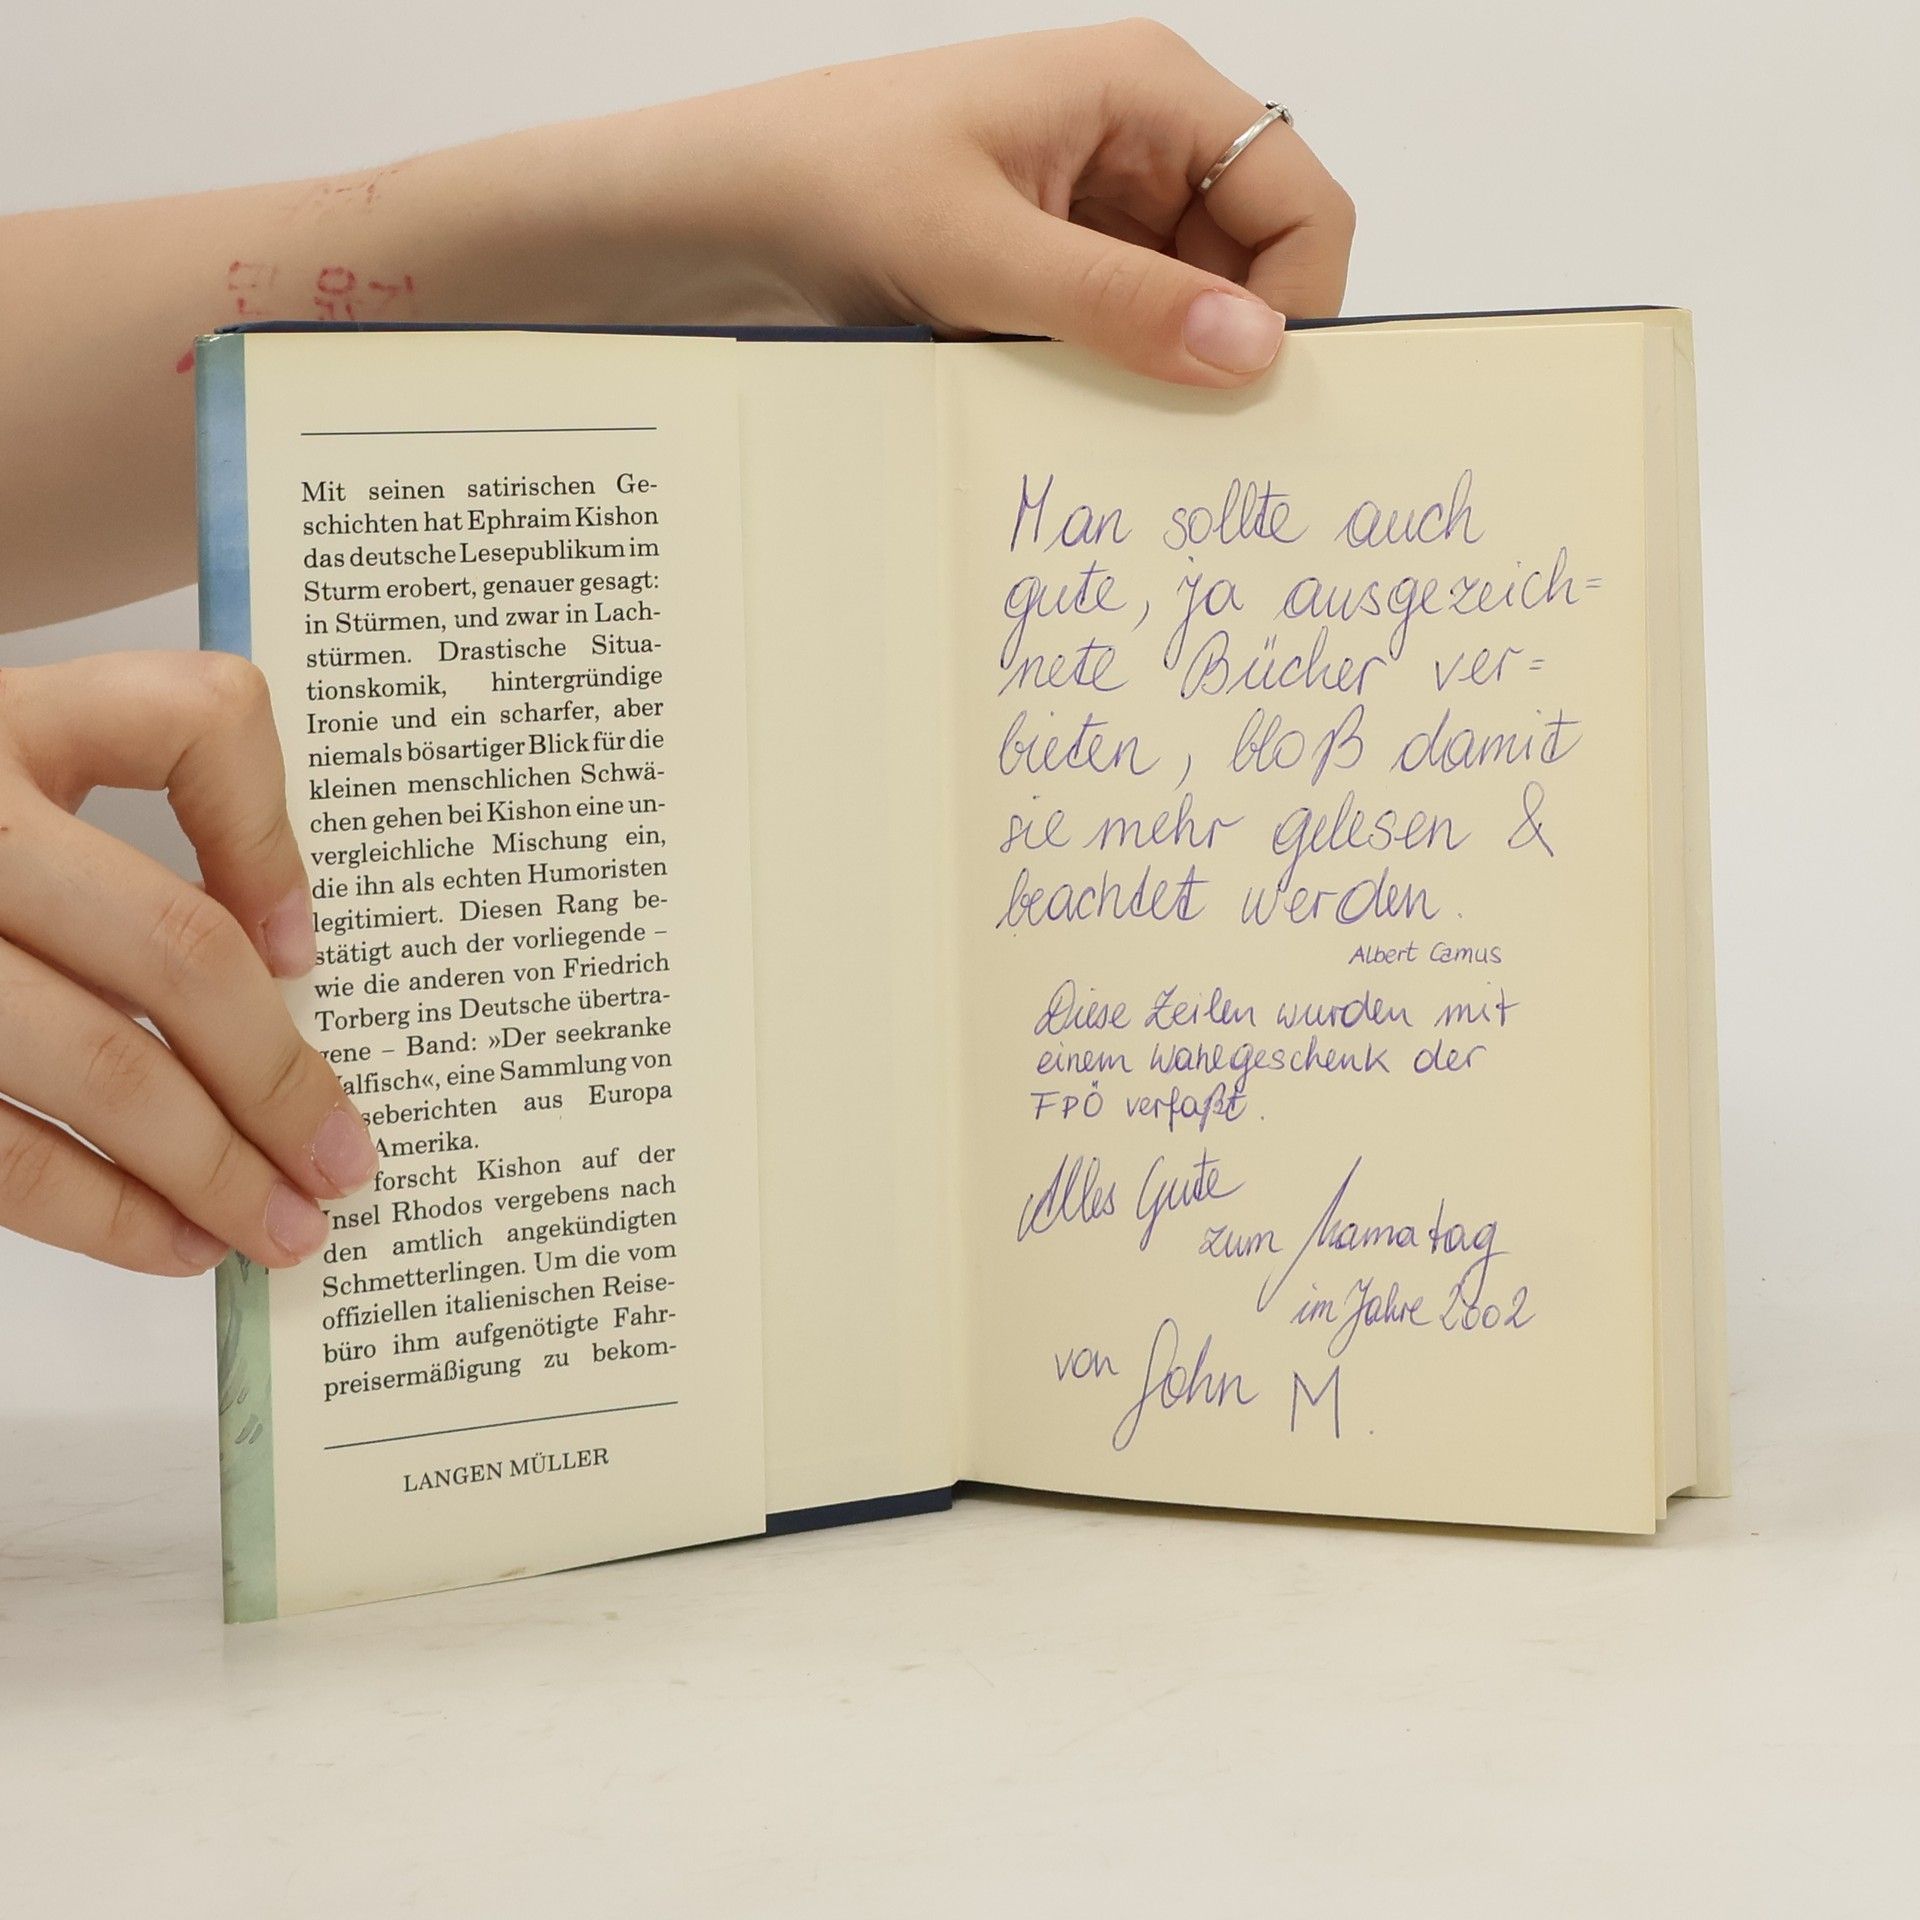 Mit seinen satirischen Ge-
schichten hat Ephraim Kishon
das deutsche Lesepublikum im
Sturm erobert, genauer gesagt:
in Stürmen, und zwar in Lach-
stürmen. Drastische Situa-
tionskomik, hintergründige
Ironie und ein scharfer, aber
niemals bösartiger Blick für die
kleinen menschlichen Schwä-
chen gehen bei Kishon eine un-
vergleichliche Mischung ein,
die ihn als echten Humoristen
legitimiert. Diesen Rang be-
stätigt auch der vorliegende –
wie die anderen von Friedrich
Torberg ins Deutsche übertra-
gene – Band: »Der seekranke
alfisch«, eine Sammlung von
seberichten aus Europa
Amerika.
forscht Kishon auf der
Insel Rhodos vergebens nach
den amtlich angekündigten
Schmetterlingen. Um die vom
offiziellen italienischen Reise-
büro ihm aufgenötigte Fahr-
preisermäßigung zu bekom-
LANGEN MÜLLER
Man sollte auch
gute, ja ausgezeich=
nete Bücher ver=
bieten, bloß damit
sie mehr gelesen &
beachtet werden.
Albert Camus
Diese Zeilen wurden mit
einem Wahlgeschenk der
FPÖ verfaßt.
Alles Gute
zum Mamatag
im Jahre 2002
von John M.